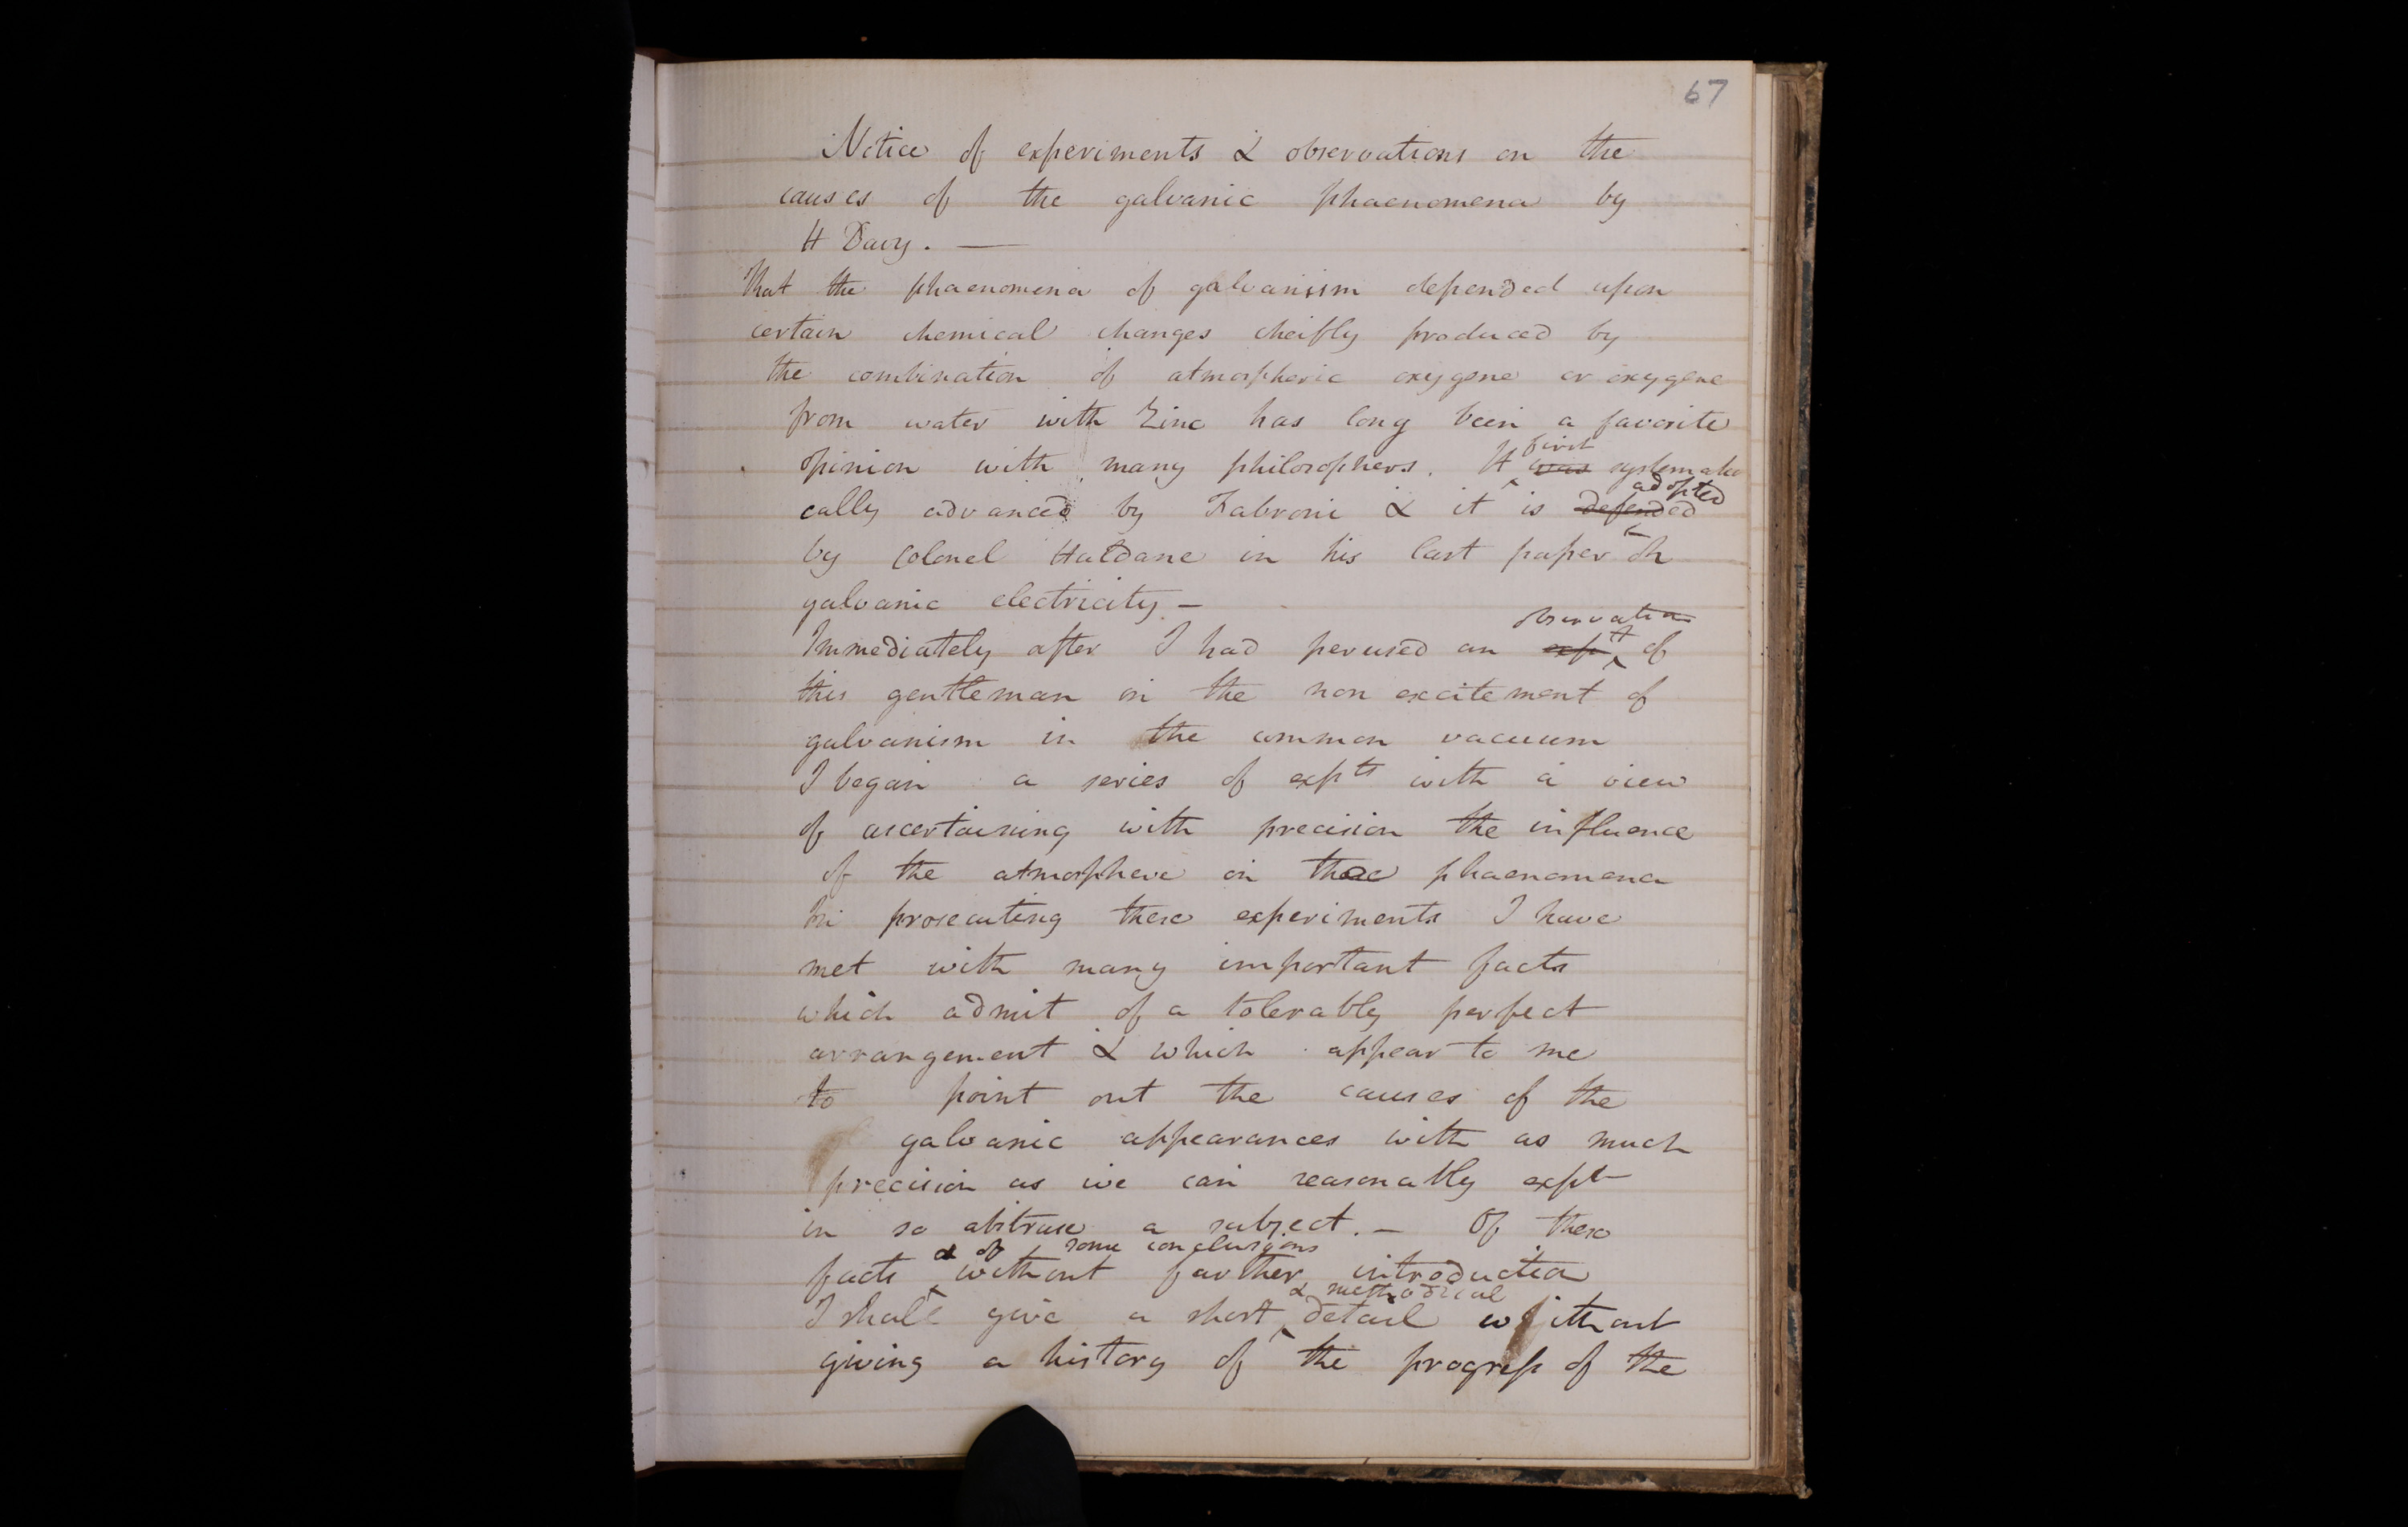 67
Notice of experiments & observations on the
causes of the galvanic phaenomena by
H Davy. —
That the phaenomena of galvanism depended upon
certain chemical changes cheifly produced by
the combination of atmospheric oxygene or oxygene
from water with Zinc has long been a favorite
opinion with many philosophers. It was first systemati
cally advanced by Fabroni & it is defended adopted
by Colonel Haldane in his last paper on
galvanic electricity —
Immediately after I had perused an expt observation of
this gentleman on the non excitement of
galvanism in the common vacuum
I began a series of expts with a view
of ascertaining with precision the influence
of the atmosphere on these phaenomena
In prosecuting these experiments I have
met with many important facts
which admit of a tolerably perfect
arrangement & which appear to me
to point out the causes of the
galvanic appearances with as much
precision as we can reasonably expt
in so abstruse a subject. — Of these
facts & of some conclusions without farther introduction
I shall give a short & methodical detail without
giving a history of the progress of the